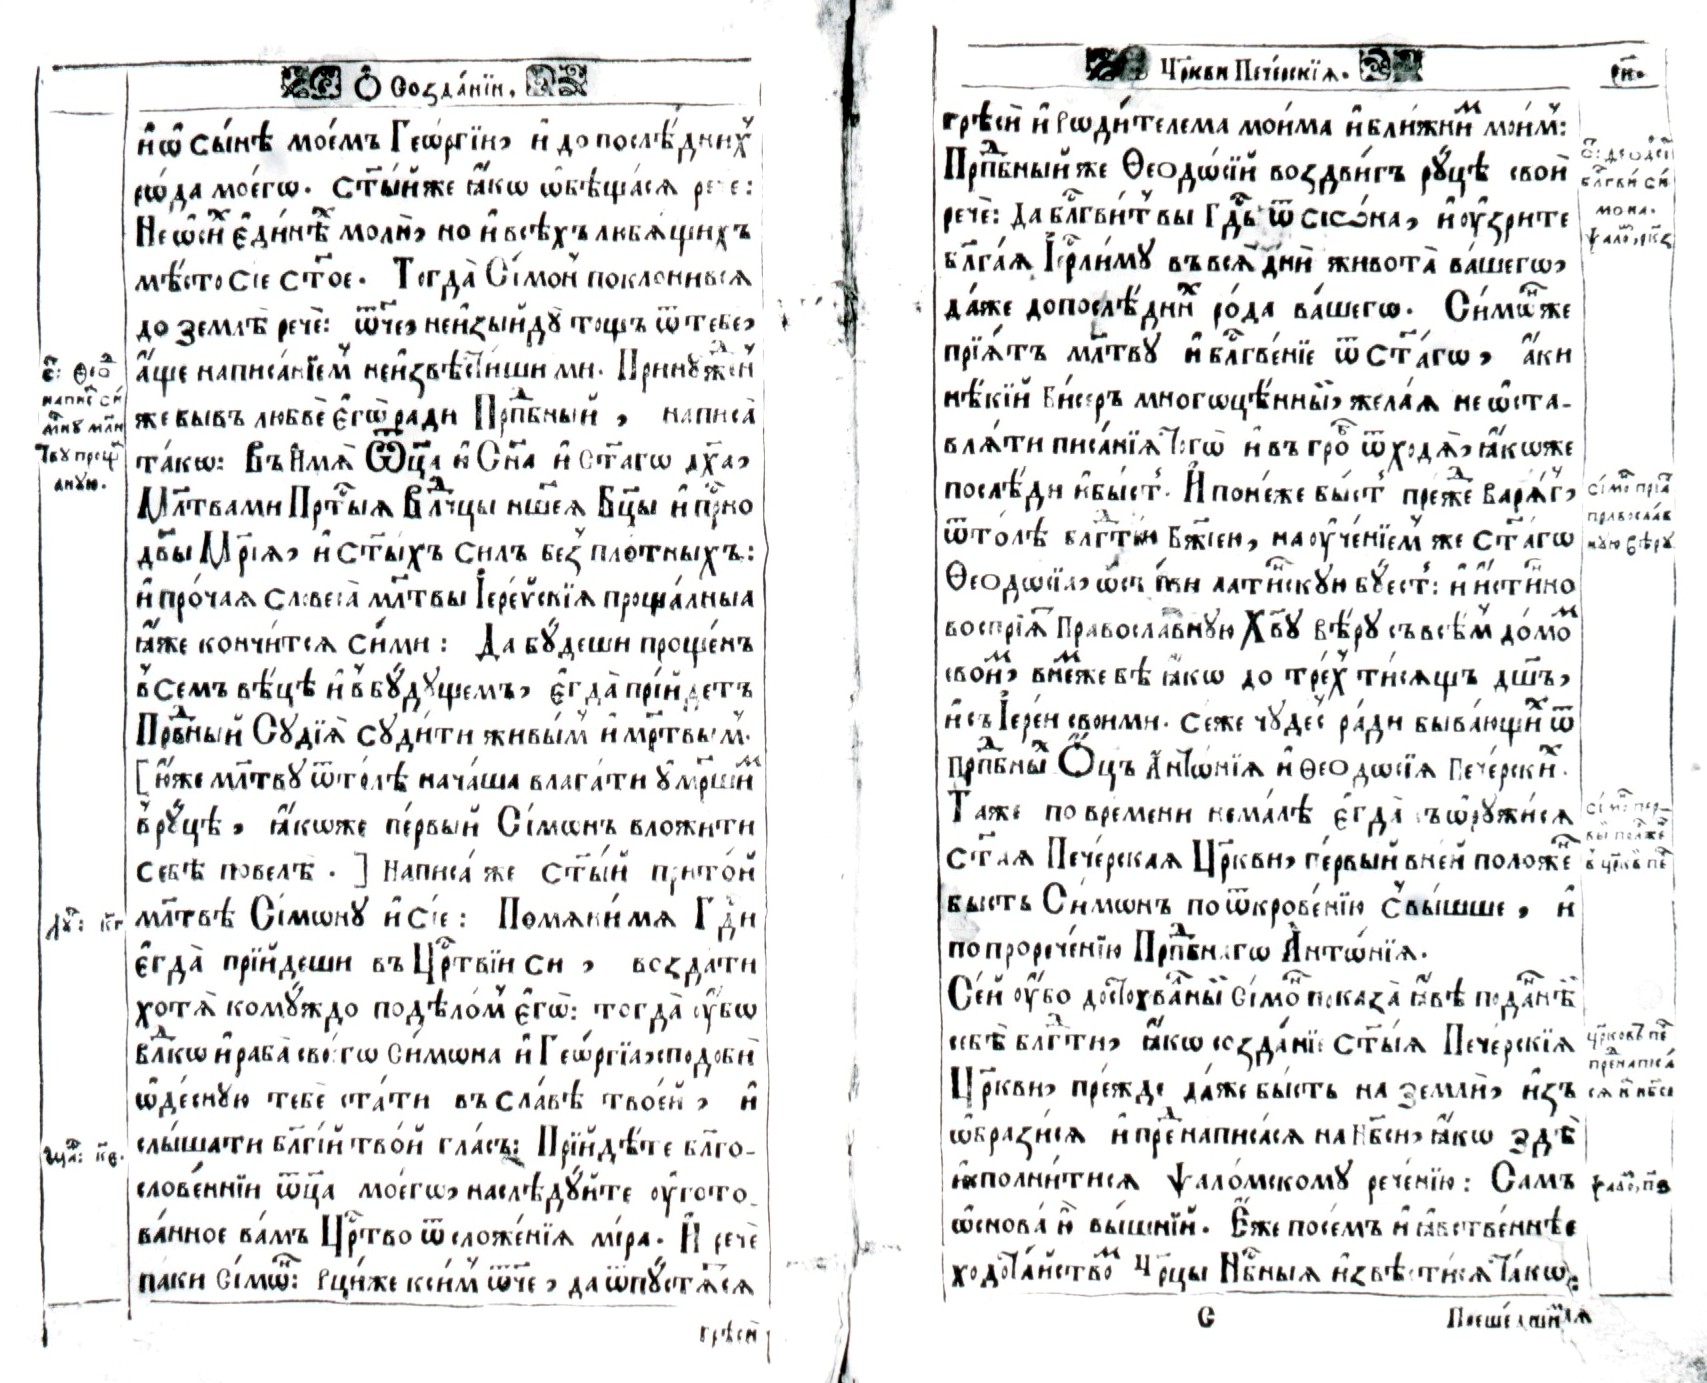 Ѽ Созда́нїи.
и҆ ѡ҆ сы́нѣ мое́мъ Геѡ́ргїи, и҆ до послѣ́днихъ
рѡ́да моегѡ̀. ст҃ы́й же ꙗ҆́кѡ ѡ҆бѣща́сѧ рече:
Не ѡ҆ си́хъ є҆ди́нѣхъ молѝ, но и҆ всѣ́хъ любѧ́щихъ
мѣ́сто сїе ст҃ое. Тогда̀ Сі́мон поклони́всѧ
до землѣ̀ речѐ: ѿч҃е, не и҆зы́йдꙋ тощъ ѿ тебе,
а҆́ще написа́нїемъ не и҆звѣсти́ши ми. Принꙋжде́нъ
же бывъ любвѐ є҆гѡ̀ ради Прпⷣбный, написа̀
та́кѡ: Въ И҆мѧ̀ Ѿц҃а̀ и҆ Сн҃а и҆ Ст҃агѡ дх҃а,
Мл҃твами Прⷭ҇тыѧ Влⷣчцы нш҃еѧ Бц҃ы и҆ прⷭ҇но
дв҃ы Мр҃і́ѧ, и҆ ст҃ы́хъ силъ безъ пло́тныхъ:
и҆ про́чаѧ словеса̀ мл҃твы І҆ере́йскїѧ проща́лныѧ
ꙗ҆́же кончи́тсѧ си́ми: Да бꙋ́деши проще́нъ
в̾ семъ вѣ́цѣ и҆ в̾ бꙋ́дꙋщемъ, є҆гда̀ прїи́детъ
Првⷣный Сꙋдїѧ̀ сꙋди́ти живы́м и҆ мр҃твы́м.
[ю҆́же мл҃твꙋ ѿто́лѣ нача́ша влага́ти ᲂу҆ме́ршим
в̾ рꙋ́цѣ, ꙗ҆́коже пе́рвый Сі́монъ вложи́ти
себѣ̀ повелѣ̀.] Написа́ же ст҃ы́й при то́й
мл҃твѣ Сі́мѡнꙋ и҆ сїе: Помѧни́ мѧ Гдⷭ҇и
є҆гда̀ прїи́деши въ Црⷭ҇твїи си, возда́ти
хотѧ̀ комꙋ́ждо по дѣло́м є҆гѡ̀: тогда̀ ᲂу҆́бѡ
Влⷣкѡ и҆ раба̀ своегѡ̀ Си́мѡна и҆ Геѡ́ргїа, сподо́би
ѡ҆деснꙋ́ю тебѐ ста́ти въ сла́вѣ твое́й, и҆
слы́шати бл҃гі́й тво́й гла́съ: Прїиди́те бл҃го-
слове́ннїи ѿц҃а моегѡ̀, наслѣ́дꙋйте ᲂу҆гото-
ва́нное ва́мъ Црⷭ҇тво ѿ сложе́нїѧ мі́ра. И҆ речѐ
паки Сі́мѡн: Рцы́ же к си́м ѿч҃е, да ѿпꙋстѧ́тсѧ
грѣси̑
є҃: Ѳеоⷣ
написа̀ Си́
мѡнꙋ мл҃и
твꙋ прощ
алнꙋю.
Лꙋ: к҃г
Маⷴ: к҃е.
Црⷭ҇кви Пече́рскїѧ.
р҃и.
грѣсѝ и҆ Роди́телема мои́ма и҆ бли́жним мои́м:
Прпⷣбный же Ѳеодо́сїй воздви́гъ рꙋ́цѣ свои̑
речѐ: Да бл҃гви́т вы Гдⷭ҇ь ѿ Сїѡ́на, и҆ ᲂу҆́зрите
бл҃га́ѧ І҆ерл҃и́мꙋ въ всѧ̀ дни̑ живота̀ ва́шегѡ,
да́же до послѣ́дних ро́да ва́шегѡ. Си́мѡн же
прїѧ́тъ мл҃твꙋ и҆ бл҃гве́нїе ѿ ст҃а́гѡ, а҆́ки
нѣ́кїй би́серъ многоцѣ́нный, жела́ѧ не ѡ҆ста-
влѧ́ти писа́нїѧ тогѡ̀ и҆ въ гроб ѿходѧ̀, ꙗ҆́коже
послѣ́ди и҆ бы́сть. И҆ поне́же бы́сть пре́жде Варѧ́г,
ѿто́лѣ блгⷣтїю Бж҃їею, наᲂуче́нїем же ст҃а́гѡ
Ѳеодо́сїа, ѡ҆ста́ви лати́нскꙋю бꙋ́есть: и҆ и҆́стинно
воспрїѧ́т Правосла́внꙋю Хв҃ꙋ вѣ́рꙋ съ всѣ́м до́мом
свои́м, в не́мже бѣ̀ ꙗ҆́ко до тре́х ти́сѧщъ дш҃ъ,
и҆ съ І҆ере́и своими. се́же чꙋде́с ра́ди быва́ющих ѿ
прпⷣбных Ѻ҆ц҃ъ А҆нто́нїѧ и҆ Ѳеодо́сїѧ Пече́рских.
Таже по времени нема́лѣ є҆гда̀ съѡрꙋжи́сѧ
ст҃аѧ Пече́рскаѧ Црⷭ҇кви, пе́рвый в не́й положе́н
бысть Си́мѡнъ по ѿкрове́нїю свы́шше, и҆
по прорече́нїю Прпⷣбнагѡ А҆нто́нїѧ.
Се́й ᲂу҆́бо достохва́лный Сі́мон показа̀ ꙗ҆́вѣ пода́ннѣй
себѣ̀ блгⷣти, ꙗ҆́ко созда́нїе ст҃ы́ѧ Пече́рскїѧ
Црⷭ҇кви, пре́жде да́же бы́сть на землѝ, и҆зъ
ѡ҆брази́сѧ и҆ пренаписа́сѧ на Нб҃си, ꙗ҆́ко здѣ̀
и҆сполни́тисѧ ѱало́мскомꙋ рече́нїю: Самъ
ѡ҆снова̀ ю҆̀ вы́шнїй. Е҆́же посе́мъ и҆ ꙗ҆́вственнѣе
хода́тайством Црⷭ҇цы Нбⷭ҇ныѧ и҆звѣсти́сѧ та́кѡ:
С
Поеше́дшїѧ
С: Ѳеодо́сїй
бл҃гви́ Си́
мона.
ѱало́, рк҃з
Сі́мо прїѧ̀
правосла́в
нꙋю вѣ́рꙋ
Сі́мо пер-
вы́й поло́же
в̾ црⷭ҇кв пе
Црⷭ҇ковъ пе
пренаписа́
сѧ н нбⷭ҇си
ѱало́, п҃ѕ